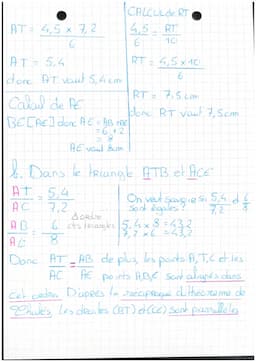 AT = 4,5 x 7,2
6
AT = 5,4
donc AT vaut 5,4cm
CALCUL de RT
4,5 = RT
6 10
RT = 4,5 x 10
6
RT = 7,5cm
donc RT vaut 7,5cm
Calcul de AE
BE[AE] donc AE = AB + BE
= 6 + 2
= 8
AE vaut 8cm
b. Dans le triangle ATB et ACE
AT = 5,4
AC 7,2
AB = 6
AE 8
On veut savoir si 5,4 et 6
sont égales? 7,2 8
5,4 x 8 = 43,2
7,2 x 6 = 43,2
Donc AT = AB de plus, les points A,T,C et les
AC AE points A,B,E sont alignés dans
cet ordre. D'après la réciproque du théorème de
Thalès, les droites (BT) et (CE) sont parallèles